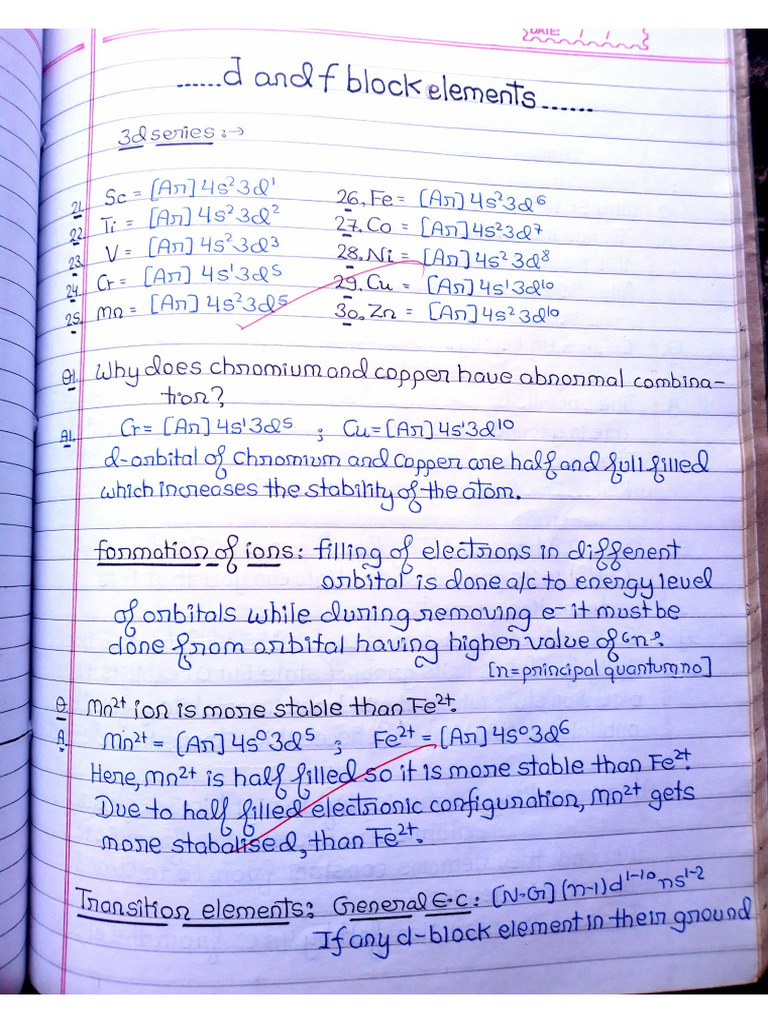 DATE: / /
......d and f block elements......
3d series:→
21. Sc = [Ar] 4s²3d¹
22. Ti = [Ar] 4s²3d²
23. V = [Ar] 4s²3d³
24. Cr = [Ar] 4s¹3d⁵
25. Mn = [Ar] 4s²3d⁵
26. Fe = [Ar] 4s²3d⁶
27. Co = [Ar] 4s²3d⁷
28. Ni = [Ar] 4s²3d⁸
29. Cu = [Ar] 4s¹3d¹⁰
30. Zn = [Ar] 4s²3d¹⁰
Q1. Why does chromium and copper have abnormal combina-
tion?
A1. Cr = [Ar] 4s¹3d⁵ ; Cu = [Ar] 4s¹3d¹⁰
d-orbital of Chromium and Copper are half and full filled
which increases the stability of the atom.
formation of ions: filling of electrons in different
orbital is done a/c to energy level
of orbitals while during removing e- it must be
done from orbital having higher value of 'n'.
[n=principal quantum no]
Q. Mn²⁺ ion is more stable than Fe²⁺.
A. Mn²⁺ = [Ar] 4s⁰3d⁵ ; Fe²⁺ = [Ar] 4s⁰3d⁶
Here, Mn²⁺ is half filled so it is more stable than Fe²⁺.
Due to half filled electronic configuration, Mn²⁺ gets
more stabalised, than Fe²⁺.
Transition elements: General E.C: [N.G] (n-1)d¹⁻¹⁰ ns¹⁻²
If any d-block element in their ground